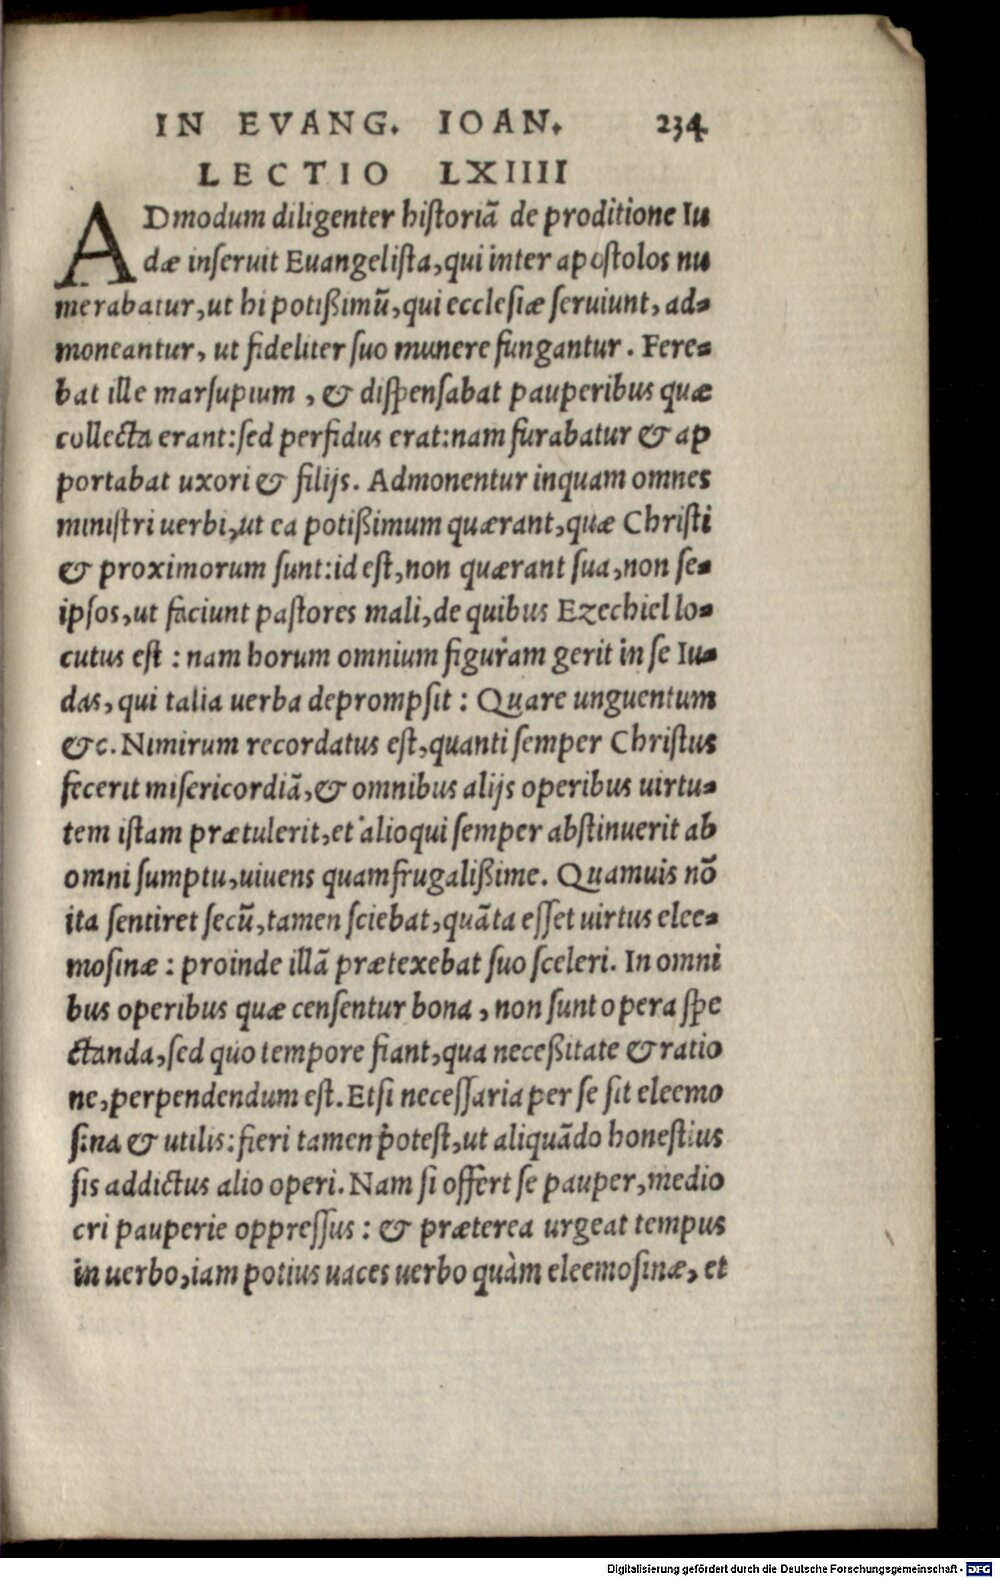 IN EVANG. IOAN. 234
LECTIO LXIIII
ADmodum diligenter historiã de proditione Iu
dæ inseruit Euangelista, qui inter apostolos nu
merabatur, ut hi potißimũ, qui ecclesiæ seruiunt, ad-
moneantur, ut fideliter suo munere fungantur. Fere-
bat ille marsupium, & dispensabat pauperibus quæ
collecta erant: sed perfidus erat: nam furabatur & ap
portabat uxori & filijs. Admonentur inquam omnes
ministri uerbi, ut ea potißimum quærant, quæ Christi
& proximorum sunt: id est, non quærant sua, non se-
ipsos, ut faciunt pastores mali, de quibus Ezechiel lo-
cutus est: nam horum omnium figuram gerit in se Iu-
das, qui talia uerba deprompsit: Quare unguentum
&c. Nimirum recordatus est, quanti semper Christus
fecerit misericordiã, & omnibus alijs operibus uirtu-
tem istam prætulerit, et alioqui semper abstinuerit ab
omni sumptu, uiuens quam frugalißime. Quamuis nõ
ita sentiret secũ, tamen sciebat, quãta esset uirtus elee-
mosinæ: proinde illã prætexebat suo sceleri. In omni
bus operibus quæ censentur bona, non sunt opera spe
ctanda, sed quo tempore fiant, qua neceßitate & ratio
ne, perpendendum est. Etsi necessaria per se sit eleemo
sina & utilis: fieri tamen potest, ut aliquãdo honestius
sis addictus alio operi. Nam si offert se pauper, medio
cri pauperie oppressus: & præterea urgeat tempus
in uerbo, iam potius uaces uerbo quàm eleemosinæ, et
Digitalisierung gefördert durch die Deutsche Forschungsgemeinschaft - DFG